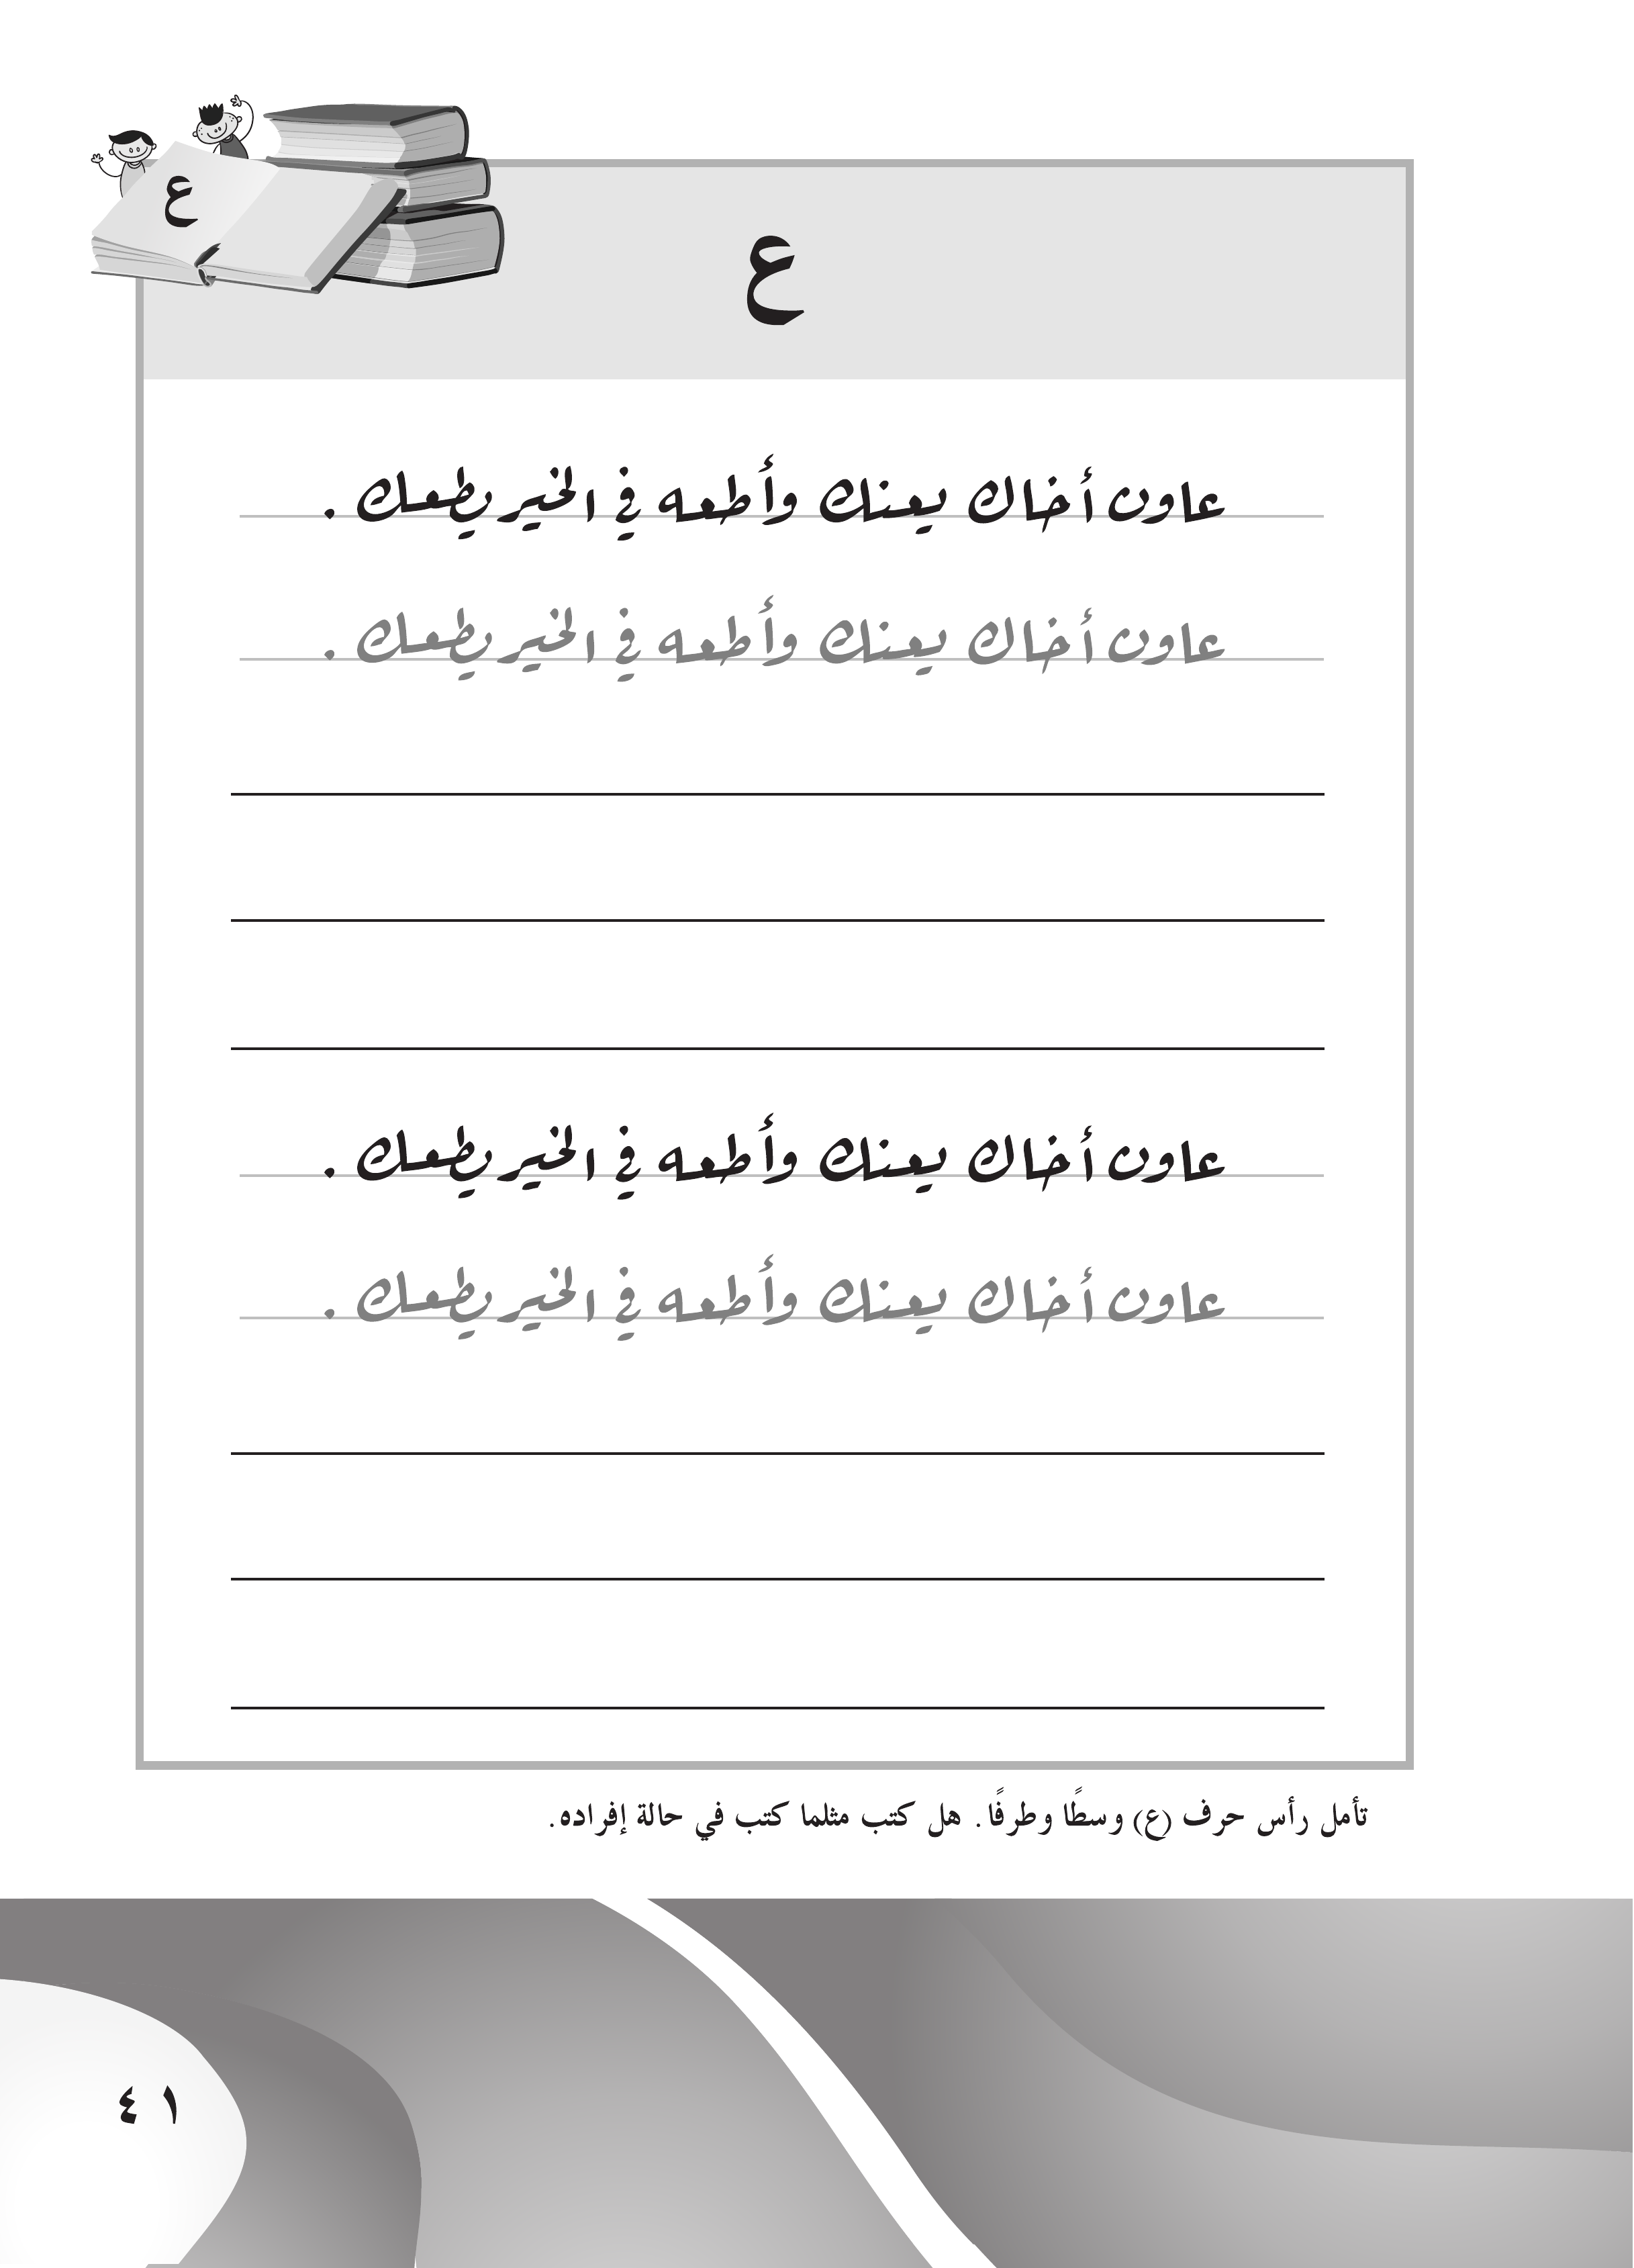 ع
ع
عاون أخاك يعنك وأطعه في الخير يطعك .
عاون أخاك يعنك وأطعه في الخير يطعك .
عاون أخاك يعنك وأطعه في الخير يطعك .
عاون أخاك يعنك وأطعه في الخير يطعك .
تأمل رأس حرف (ع) وسطًا وطرفًا. هل كتب مثلما كتب في حالة إفراده.
٤١